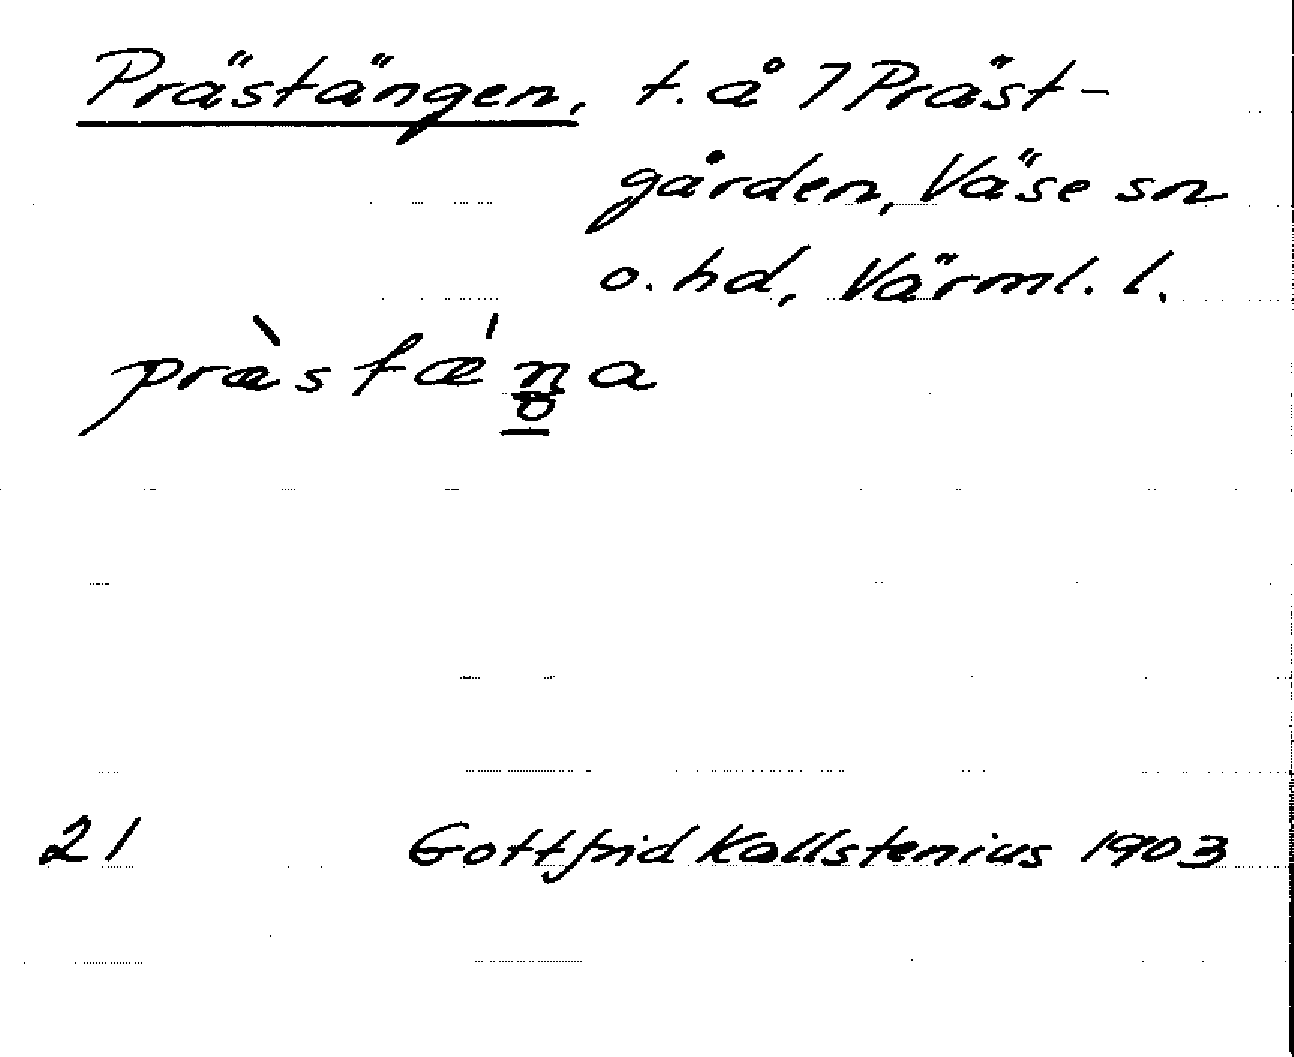 Prästängen, t. å 7 Präst-
gården, Väse sn
o. hd, Värml. l.
21 Gottfrid Kallstenius 1903